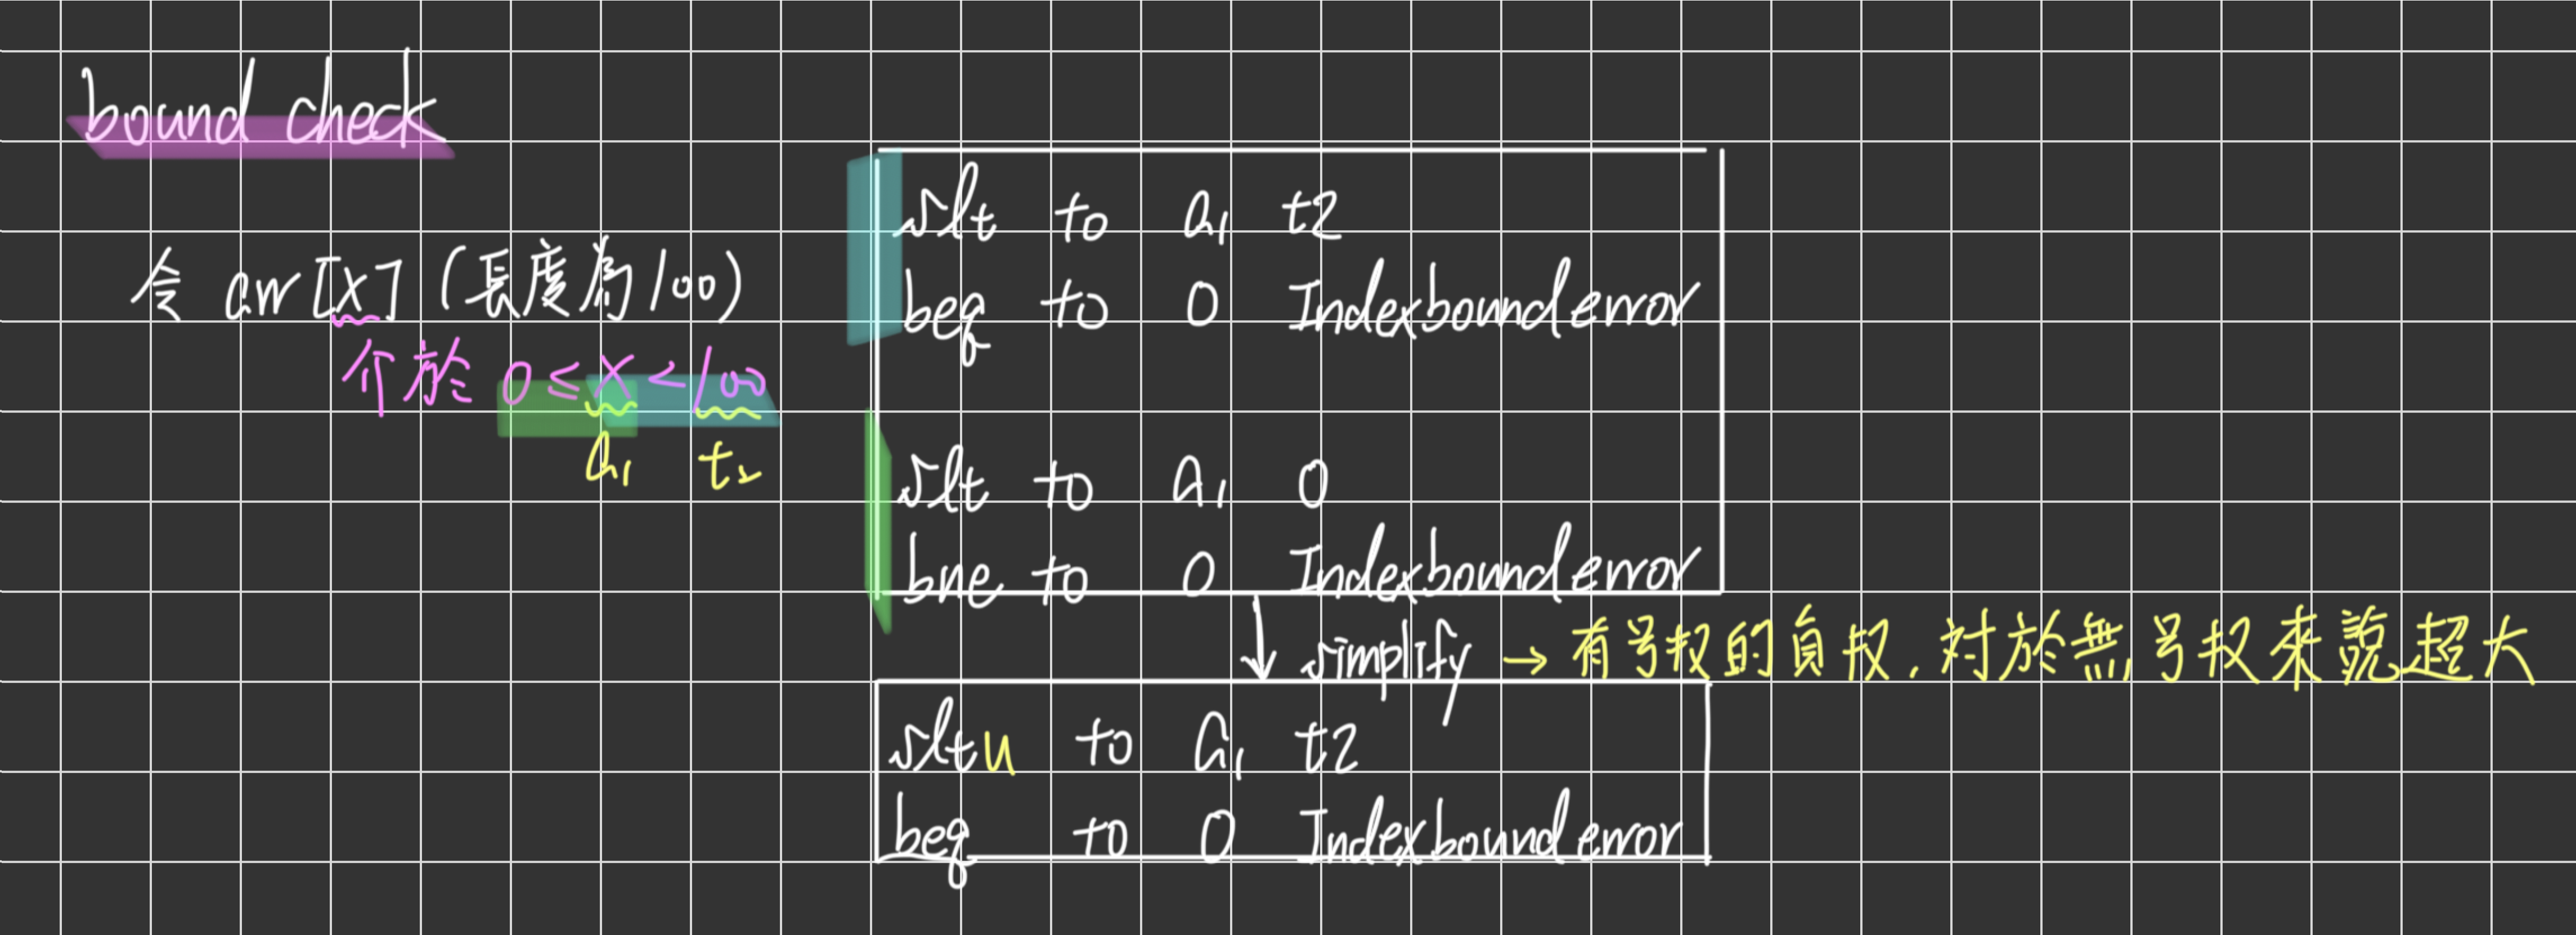 bound check
令 arr[x] (長度為100)
介於 0 ≤ x < 100
a1 t2
slt t0 a1 t2
beq t0 0 Indexbound error
slt t0 a1 0
bne t0 0 Indexbound error
↓ simplify → 有号权的負权, 対於無号权來說超大
sltu t0 a1 t2
beq t0 0 Indexbound error